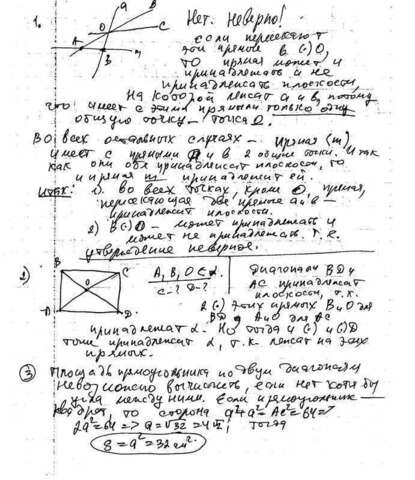 1. a B
O C
A B m
Нет. Неверно!
если пересекают
эти прямые в (·) O,
то прямая может и
принадлежать и не
принадлежать плоскости,
на которой лежат a и b, потому
что имеет с этими прямыми только одну
общую точку – точка O.
Во всех остальных случаях – прямая (m)
имеет с прямыми и в 2 общие точки. И так
как они обе принадлежат плоскости, то
и прямая m принадлежит ей.
Итак: 1. во всех точках, кроме O, прямая,
пересекающая две прямые a и в –
принадлежит плоскости.
2) В (·) O – может принадлежать и
может не принадлежать. Т.е.
утверждение неверное.
2) B C
O
A D
A, B, O ∈ α.
C - ? D - ?
Диагонали BD и
AC принадлежат
плоскости, т.к.
2 (·) этих прямых B и O для
BD и A и O для AC
принадлежат α. Но тогда и (·) C и (·) D
тоже принадлежат α, т.к. лежат на этих
прямых.
3 Площадь прямоугольника по двум диагоналям
невозможно вычислить, если нет хотя бы
угла между ними. Если прямоугольник –
квадрат, то сторона a²+a²=AC²=64 =>
2a²=64 => a=√32=4√2, тогда
S = a² = 32 см².